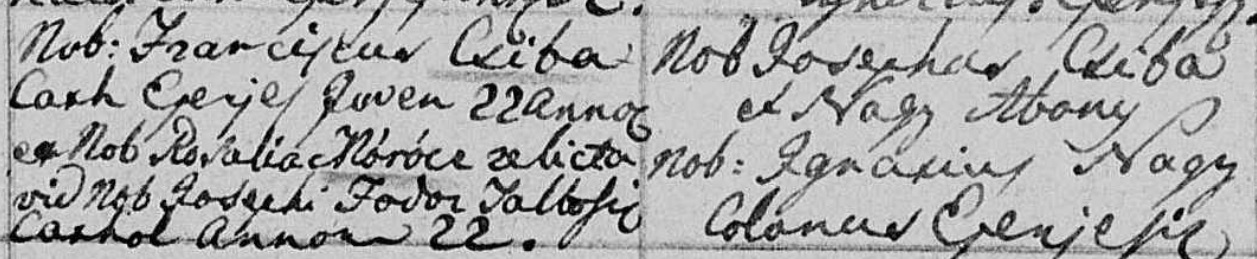 Nob: Franciscus Csiba
Cath Egerjes Juven 22 Anno
et Nob Rosalia Mórócz relicta
vid Nob Josephi Fodor
Cathol Annor 22.
Nob Josephus Csiba
et Nagy Abony
Nob: Ignatius Nagy
Colonus